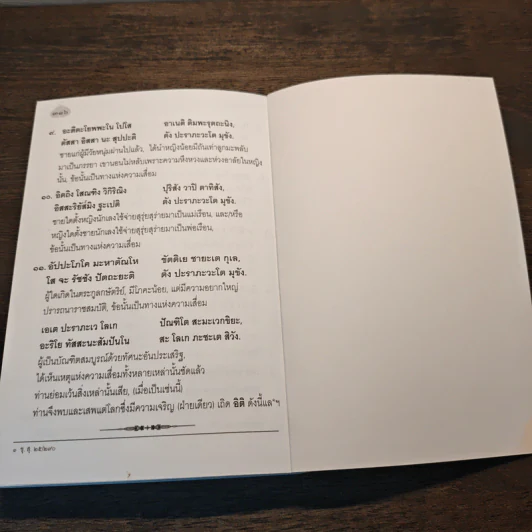 ๙. อะตีตะโยพพะโน โปโส อาเนติ ติมพะรุตถะนิง,
ตัสสา อิสสา นะ สุปปะติ ตัง ปะราภะวะโต มุขัง.
ชายแก่ผู้มีวัยหนุ่มผ่านไปแล้ว, ได้นำหญิงน้อยมีถันเท่าลูกมะพลับ
มาเป็นภรรยา เขานอนไม่หลับเพราะความหึงหวงและห่วงอาลัยในหญิง
นั้น, ข้อนั้นเป็นทางแห่งความเสื่อม
๑๐. อิตถิง โสณฑิง วิกิริณิง ปุริสัง วาปิ ตาทิสัง,
อิสสะริยัส๎มิง ฐะเปติ ตัง ปะราภะวะโต มุขัง.
ชายใดตั้งหญิงนักเลงใช้จ่ายสุรุ่ยสุร่ายมาเป็นแม่เรือน, และหรือ
หญิงใดตั้งชายนักเลงใช้จ่ายสุรุ่ยสุร่ายมาเป็นพ่อเรือน,
ข้อนั้นเป็นทางแห่งความเสื่อม
๑๑. อัปปะโภโค มะหาตัณโห ขัตติเย ชายะเต กุเล,
โส จะ รัชชัง ปัตถะยะติ ตัง ปะราภะวะโต มุขัง.
ผู้ใดเกิดในตระกูลกษัตริย์, มีโภคะน้อย, แต่มีความอยากใหญ่
ปรารถนาราชสมบัติ, ข้อนั้นเป็นทางแห่งความเสื่อม
เอเต ปะราภะเว โลเก ปัณฑิโต สะมะเวกขิยะ,
อะริโย ทัสสะนะสัมปันโน สะ โลเก ภะชะเต สิวัง.
ผู้เป็นบัณฑิตสมบูรณ์ด้วยทัศนะอันประเสริฐ,
ได้เห็นเหตุแห่งความเสื่อมทั้งหลายเหล่านั้นชัดแล้ว
ท่านย่อมเว้นสิ่งเหล่านั้นเสีย, (เมื่อเป็นเช่นนี้)
ท่านจึงพบและเสพแต่โลกซึ่งมีความเจริญ (ฝ่ายเดียว) เถิด อิติ ดังนี้แล"ฯ